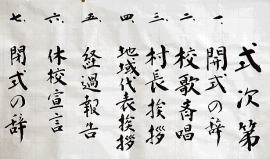 式次第
一、開式の辞
二、校歌斉唱
三、村長挨拶
四、地域代表挨拶
五、経過報告
六、休校宣言
七、閉式の辞